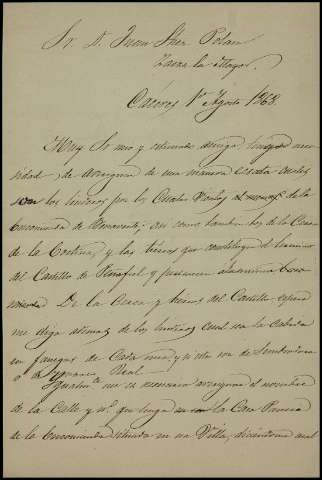 Sr. D. Juan Shez Polan
Zarza la Mayor.
Cáceres 1º Agosto 1868.
Muy Sr mio y estimado amigo, tengo nece
sidad de averiguar de una manera exacta cuales
son los linderos por los Cuatro Vientos
Encomienda de Benavente; así como tambien los de la Casa
de la Cortina, y las tierras que constituyen el terreno
del Castillo de Peñafiel y pertenecen a la misma Enco
mienda. De la Cerca y tierras del Castillo espero
me diga ademas de los linderos cual sea la Cabida
en fanegas de Cada una, y si esta son de Sembradura
o de Marco Real.
Igualmte me es necesario averiguar el nombre
de la Calle y nº que tenga la Casa Panera
de la Encomienda situada en esa Villa, diciendome cual